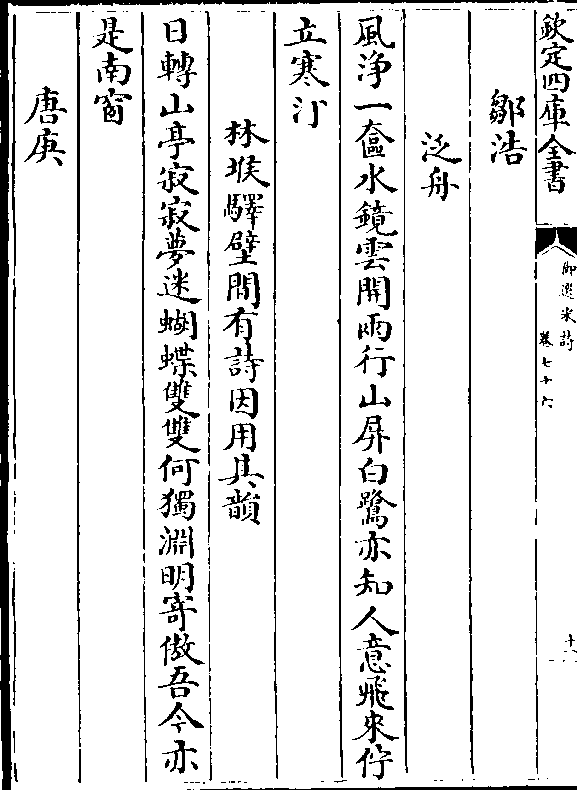 欽定四庫全書
御選宋詩
卷七十六
鄒浩
泛舟
風浄一奩水鏡雲開兩行山屏白鷺亦知人意飛來佇
立寒汀
林堠驛壁間有詩因用其韻
日轉山亭寂寂夢迷蝴蝶雙雙何獨淵明寄傲吾今亦
是南窗
唐庚